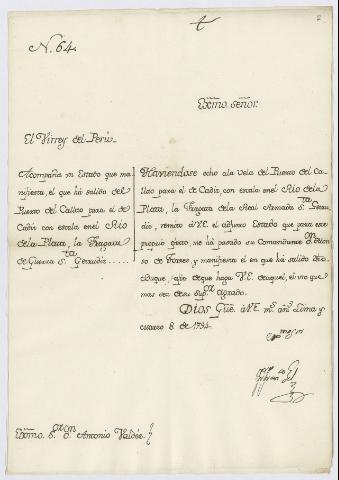 N. 64.
2
Exmo. señor.
El Virrey del Perú.
Acompaña un Estado que ma-
nifiesta, el que há salido del
Puerto del Callao para el de
Cadiz con escala en el Río
de la Plata, la Fragata
de Guerra Sta. Gertrudis.....
Haviendose echo ala Vela del Puerto del Ca-
llao para el de Cadiz con escala en el Río dela
Plata, la Fragata dela Real Armada Sta. Gertru-
dis, remito á V.E. el adjunto Estado que para este
propio efecto, me há pasado su Comandante Dn.
de Torres, y manifiesta el en que há salido dicho
Buque, afin deque haga V.E. deaquel, el uso que
mas sea de su Supor. agrado.
Dios Gũe. á V.E. ms. añs. Lima y
Marzo 8. de 1794.
Exmo. Sor. Dn. Antonio Valdés.